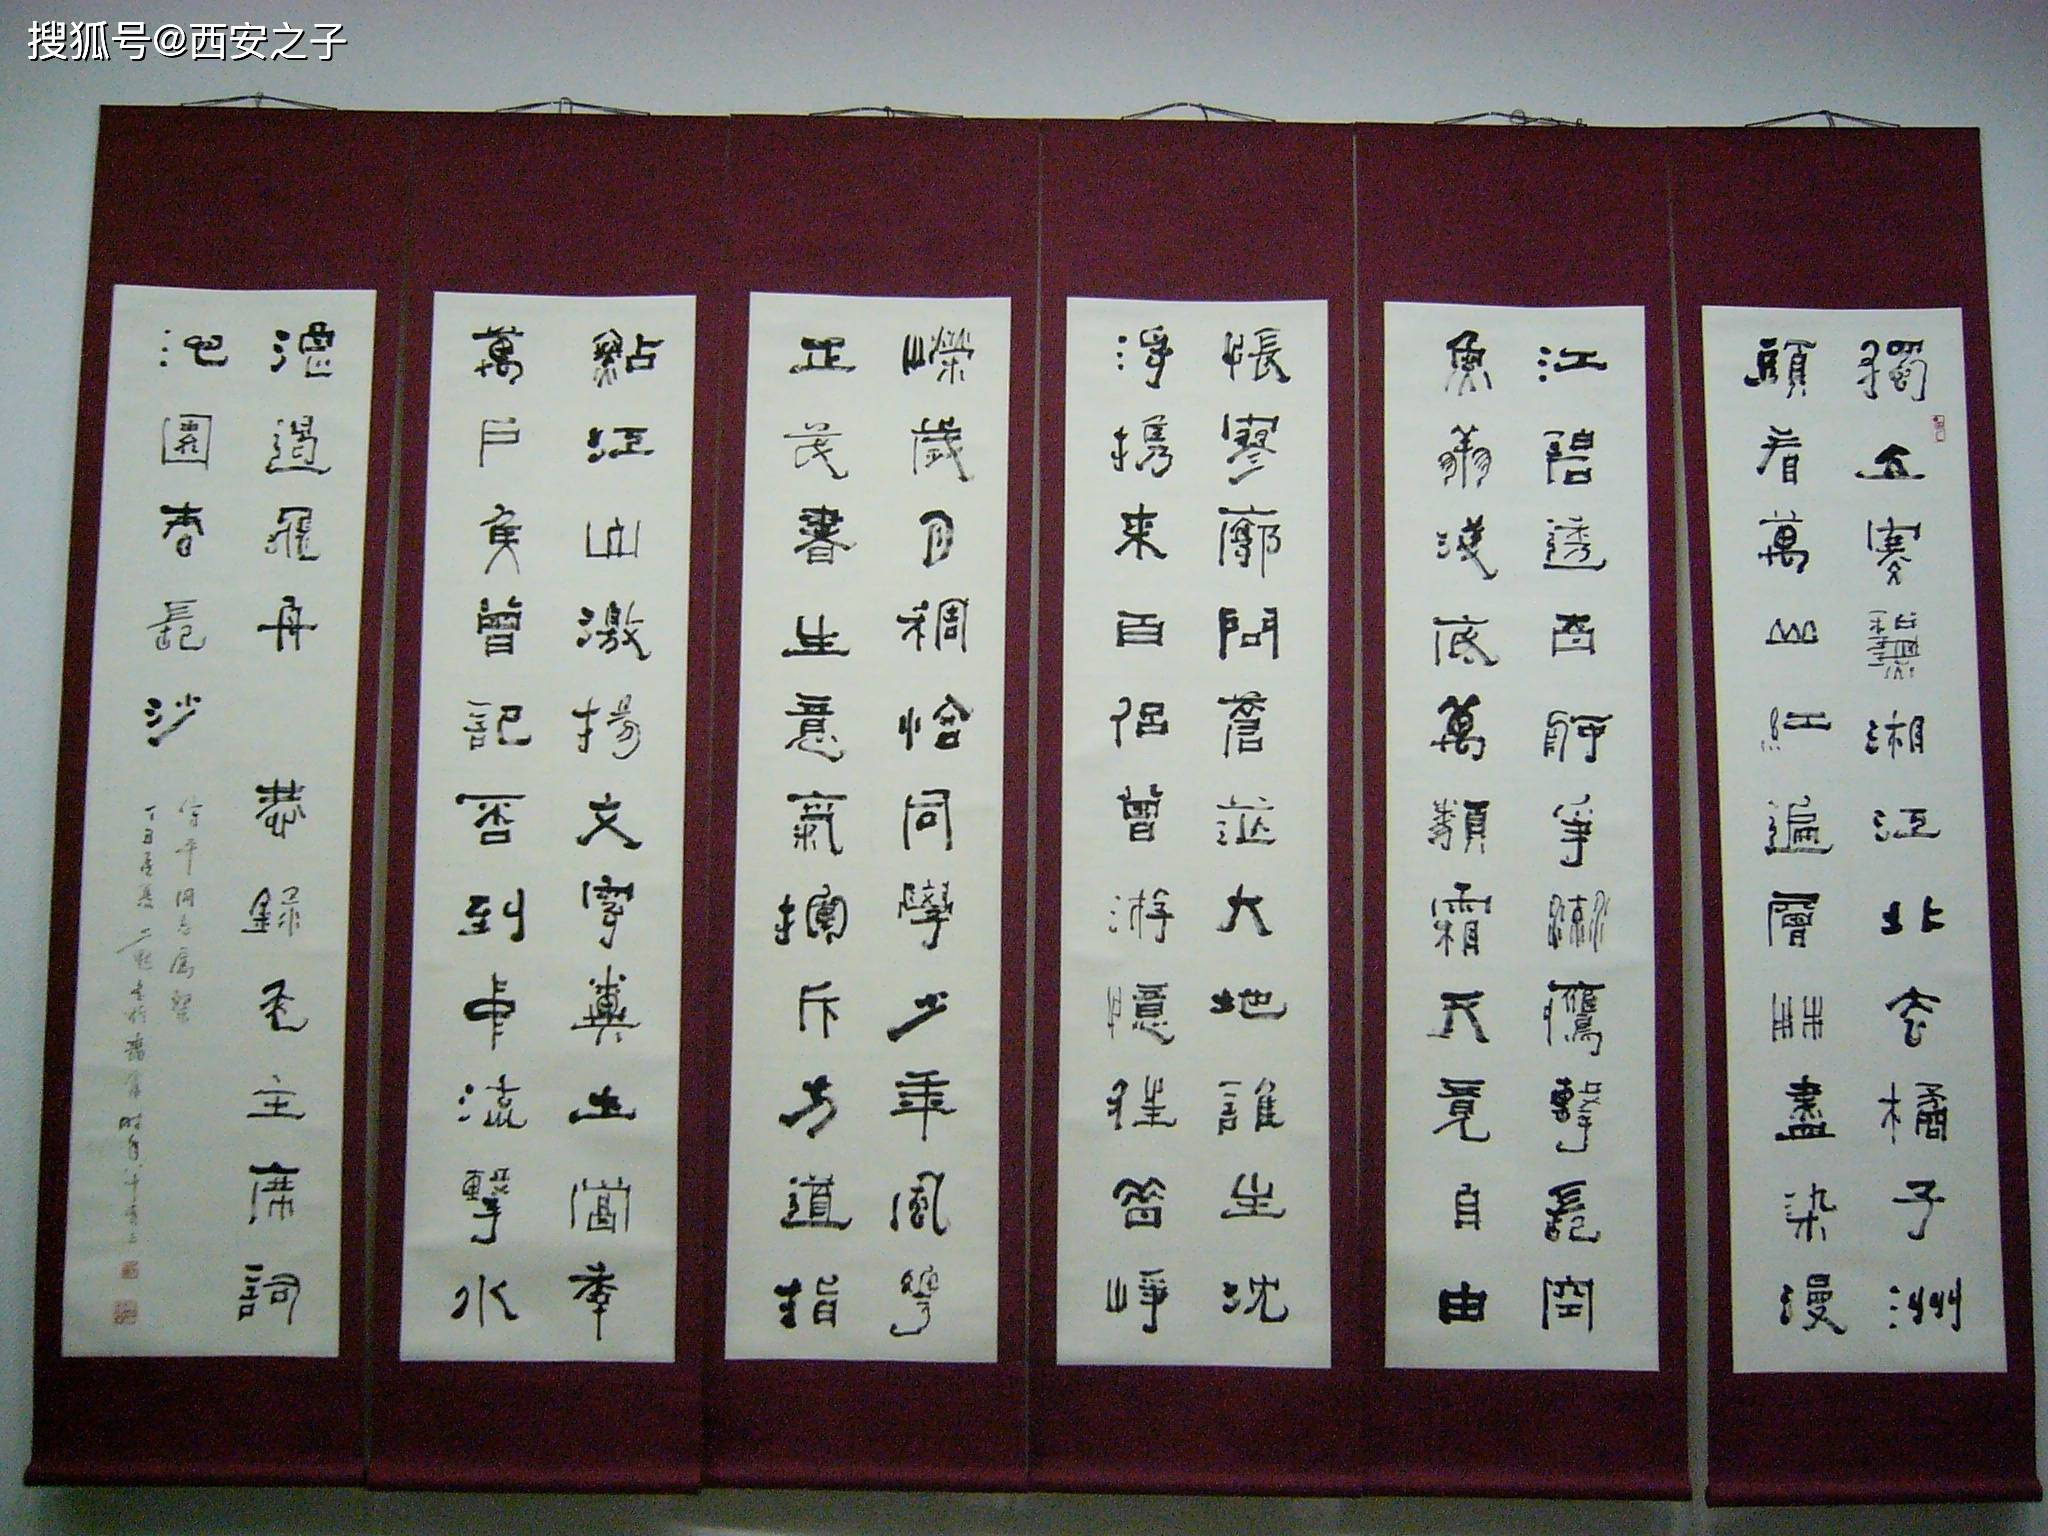 搜狐号@西安之子
獨立寒秋湘江北去橘子洲
頭看萬山紅遍層林盡染漫
江碧透百舸爭流鷹擊長空
魚翔淺底萬類霜天競自由
悵寥廓問蒼茫大地誰主沈
浮攜來百侶曾游憶往昔崢
嶸歲月稠恰同學少年風華
正茂書生意氣揮斥方遒指
點江山激揚文字糞土當年
萬戶侯曾記否到中流擊水
浪遏飛舟 恭錄毛主席詞
沁園春長沙
平同志屬
丁丑孟夏 時年八十有三